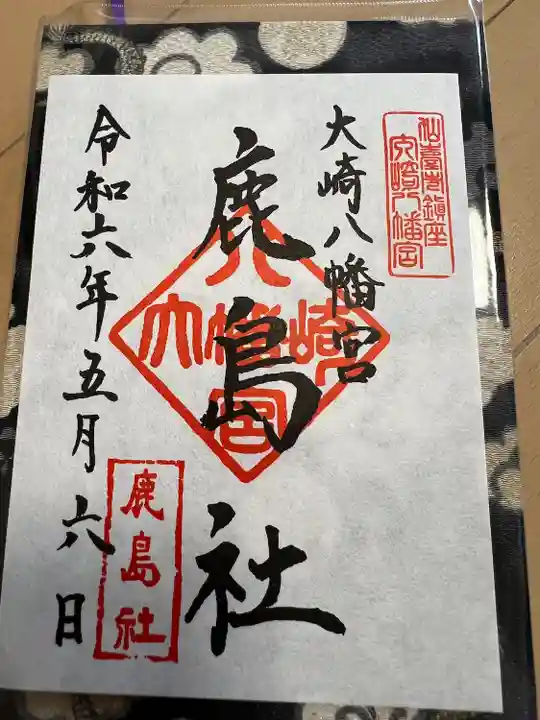 仙臺市鎮座
大崎八幡宮
大崎八幡宮
鹿島社
八幡宮
大崎
鹿島社
令和六年五月六日